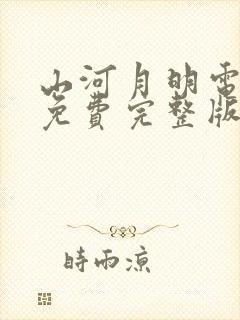 山河月明電
免費完整版
時雨涼